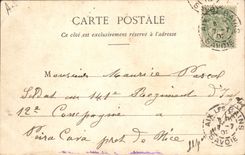 CARTE POSTALE
Ce côté est exclusivement réservé à l'adresse
Monsieur Maurice
Soldat au 141e Régiment d'
12e Compagnie à
Peïra Cava près de Nice